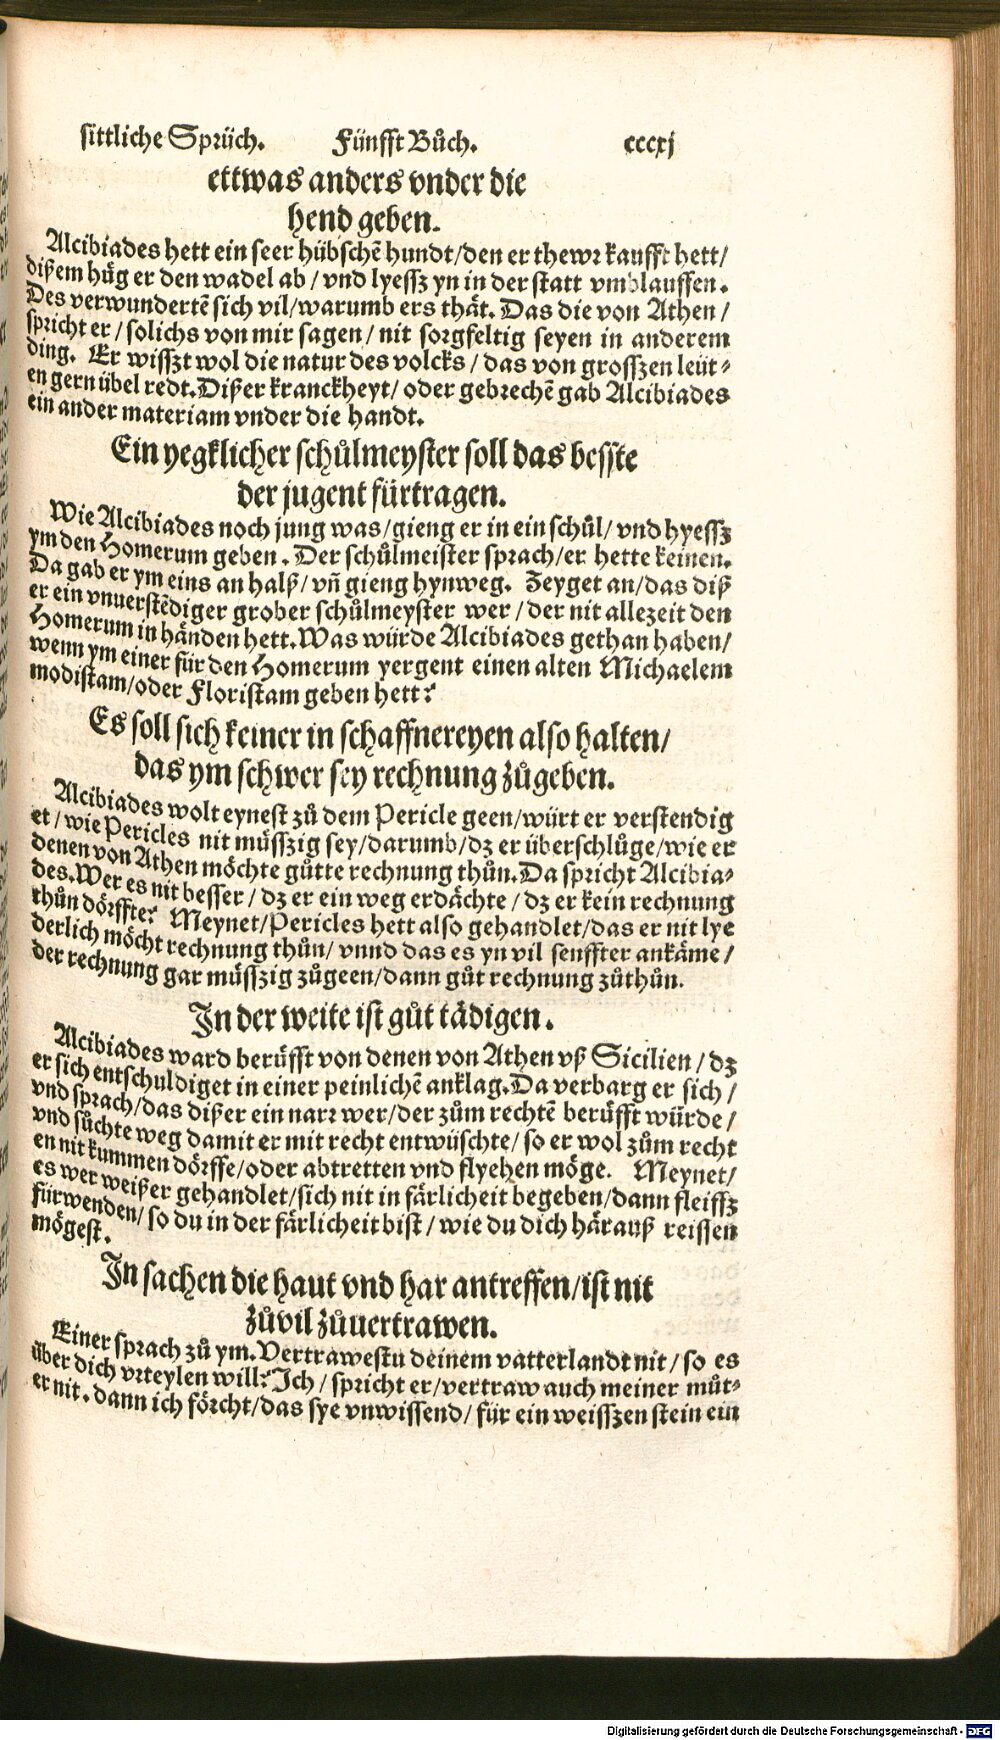 sittliche Sprüch. Fünfft Bůch. cccxj
ettwas anders vnder die
hend geben.
Alcibiades hett ein seer hübschē hundt/den er thewr kaufft hett/
dißem hůg er den wadel ab/ vnd lyessz yn in der statt vmblauffen.
Des verwundertē sich vil/warumb ers thät. Das die von Athen/
spricht er/ solichs von mir sagen/ nit sorgfeltig seyen in anderem
ding. Er wisszt wol die natur des volcks/ das von grosszen leüt⸗
en gern übel redt. Dißer kranckheyt/ oder gebrechē gab Alcibiades
ein ander materiam vnder die handt.
Ein yegklicher schůlmeyster soll das besste
der jugent fürtragen.
Wie Alcibiades noch jung was/gieng er in ein schůl/ vnd hyessz
ym den Homerum geben. Der schůlmeister sprach/er hette keinen.
Da gab er ym eins an halß/ vñ gieng hynweg. Zeyget an/das diß
er ein vnuerstēdiger grober schůlmeyster wer/der nit allezeit den
Homerum in händen hett. Was würde Alcibiades gethan haben/
wenn ym einer für den Homerum yergent einen alten Michaelem
modistam/oder Floristam geben hett?
Es soll sich keiner in schaffnereyen also halten/
das ym schwer sey rechnung zůgeben.
Alcibiades wolt eynest zů dem Pericle geen/würt er verstendig
et/ wie Pericles nit müsszig sey/darumb/dz er überschlüge/wie er
denen von Athen möchte gůtte rechnung thůn. Da spricht Alcibia⸗
des. Wer es nit besser/ dz er ein weg erdächte/ dz er kein rechnung
thůn dörffte? Meynet/Pericles hett also gehandlet/das er nit lye
derlich möcht rechnung thůn/ vnnd das es yn vil senffter ankäme/
der rechnung gar müsszig zůgeen/dann gůt rechnung zůthůn.
In der weite ist gůt tädigen.
Alcibiades ward berüfft von denen von Athen vß Sicilien/ dz
er sich entschuldiget in einer peinlichē anklag. Da verbarg er sich/
vnd sprach/das dißer ein narr wer/der zům rechtē berüfft würde/
vnd sůchte weg damit er mit recht entwüschte/ so er wol zům recht
en nit kummen dörffe/oder abtretten vnd flyehen möge. Meynet/
es wer weißer gehandlet/sich nit in färlicheit begeben/dann fleissz
fürwenden/ so du in der färlicheit bist/ wie du dich härauß reissen
mögest.
In sachen die haut vnd har antreffen/ist nit
zůvil zůuertrawen.
Einer sprach zů ym. Vertrawestu deinem vatterlandt nit/ so es
über dich vrteylen will? Ich/ spricht er/vertraw auch meiner můt⸗
er nit. dann ich förcht/das sye vnwissend/ für ein weisszen stein ein
Digitalisierung gefördert durch die Deutsche Forschungsgemeinschaft - DFG